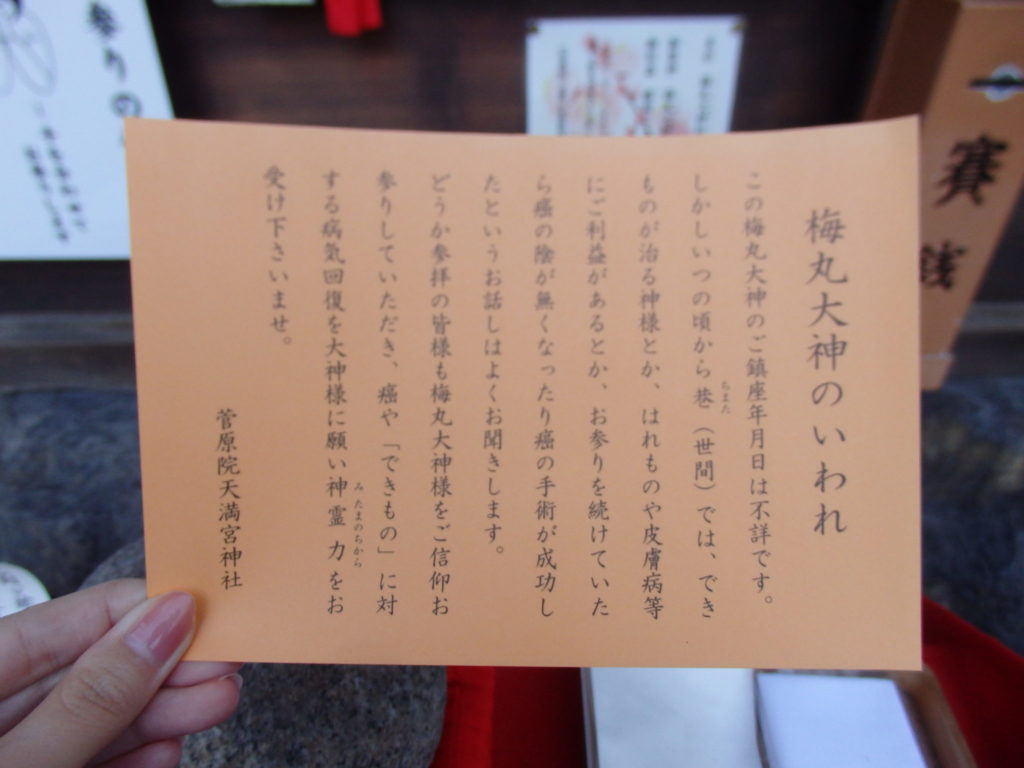 梅丸大神のいわれ
この梅丸大神のご鎮座年月日は不詳です。
しかしいつの頃から巷（世間）では、でき
ちまた
ものが治る神様とか、はれものや皮膚病等
にご利益があるとか、お参りを続けていた
ら癌の陰が無くなったり癌の手術が成功し
たというお話しはよくお聞きします。
どうか参拝の皆様も梅丸大神様をご信仰お
参りしていただき、癌や「できもの」に対
する病気回復を大神様に願い神霊力をお
みたまのちから
受け下さいませ。
菅原院天満宮神社
賽銭
参りの